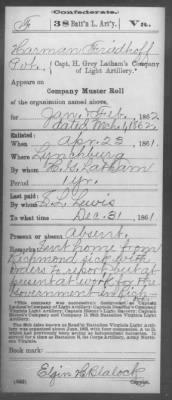 Confederate.
F 38 Batt'n L. Art'y. Va.
Harman Fridhoff
Pvt., Capt. H. Grey Latham's Company of Light Artillery.
Appears on
Company Muster Roll
of the organization named above,
for Jan. & Feb., 1862.
dated Mch. 1, 1862.
Enlisted:
When Apr. 23, 1861.
Where Lynchburg
By whom H. G. Latham
Period 1 yr.
Last paid:
By whom S. L. Lewis
To what time Dec. 31, 1861.
Present or absent Absent.
Remarks: Sent home from
Richmond sick with
orders to report, but at
present at work for the
Government in
Book mark:
Elgin H. Blalock
(642) Copyist.